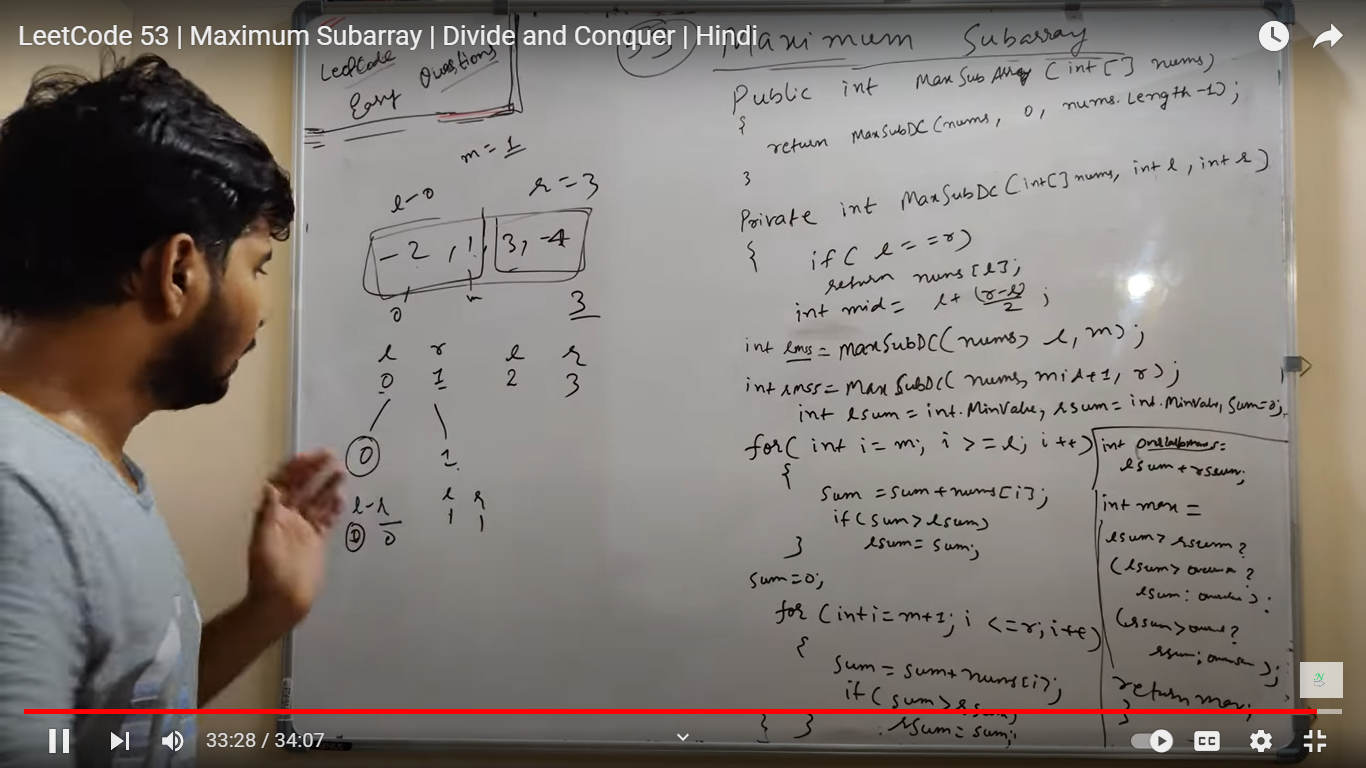 LeetCode 53 | Maximum Subarray | Divide and Conquer | Hindi
LeetCode
Questions
Easy
m = 1
l-0
r = 3
-2 , 1, 3, -4
0
m
3
l r l r
0 1 2 3
0 1
l-r l r
0 0 1 1
53 Maximum Subarray
Public int MaxSubArray (int[] nums)
{
return MaxSubDC(nums, 0, nums.length-1);
}
Private int MaxSubDC(int[] nums, int l, int r)
{ if( l==r)
return nums[l];
int mid = l+ (r-l)/2 ;
int lmss = MaxSubDC(nums, l, m);
int rmss = MaxSubDC( nums, mid+1, r);
int lsum = int.MinValue, rsum = int.MinValue, sum=0;
for( int i=m; i>=l; i++)
{
sum = sum+nums[i];
if(sum>lsum)
lsum = sum;
}
sum=0;
for (int i=m+1; i <=r; i++)
{
sum = sum+nums[i];
if( sum>rsum)
rsum = sum;
} }
int
lsum+rsum;
int max =
lsum> rsum?
(lsum>
lsum:
(rsum>
rsum:
return max;
}
33:28 / 34:07
CC